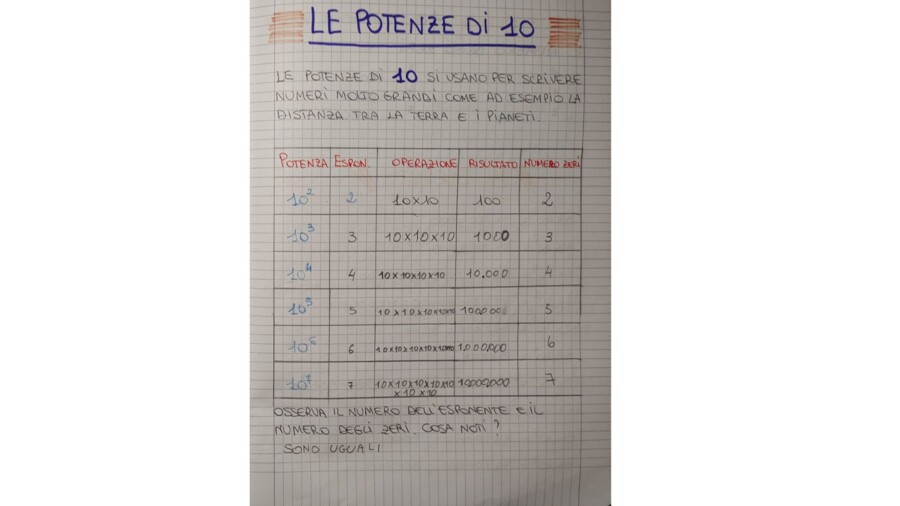 LE POTENZE Di 10
LE POTENZE Di 10 SI USANO PER SCRIVERE
NUMERI MOLTO GRANDI COME AD ESEMPIO LA
DISTANZA TRA LA TERRA E I PIANETI.
POTENZA ESPON. OPERAZIONE RISULTATO NUMERO ZERI
10² 2 10x10 100 2
10³ 3 10x10x10 1000 3
10⁴ 4 10x10x10x10 10.000 4
10⁵ 5 10x10x10x10x10 5
10⁶ 6 1.000.000 6
10⁷ 7 10x10x10x10x10 10000000 7
x10x10
OSSERVA IL NUMERO DELL'ESPONENTE E IL
NUMERO DEGLI ZERI. COSA NOTI?
SONO UGUALI